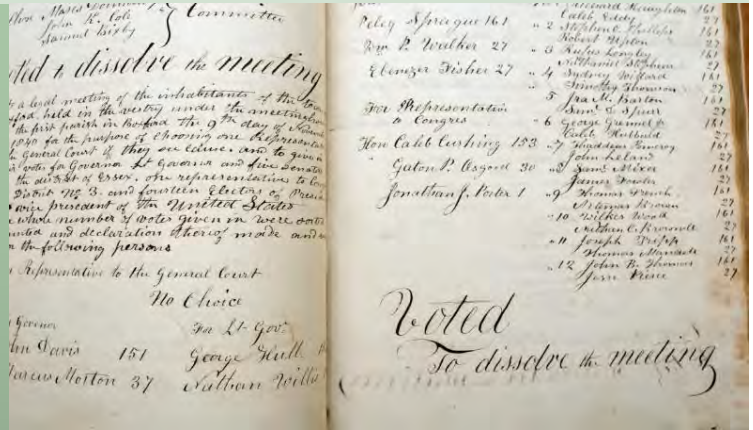 Committee
John K. Cole
Samuel Bixby
Voted to dissolve the meeting
a legal meeting of the inhabitants of the
held in the vestry under the meeting
the first parish in Boxford the 9th day of
1840 for the purpose of choosing one Representa
General Court if they see cause. and to give in
votes for Governor Lt Govenor and five Senators
the district of Essex. one representative to Con
District No 3. and fourteen Electors of Presi
vice president of the United States
whole number of votes given in were sorted
counted and declaration thereof made and
the following persons
Representative to the General Court
No Choice
Govenor
For Lt Gov
John Davis 151
George Hull
Marcus Morton 37
Nathan Willis
Peleg Sprague 161
Wm P. Walker 27
Ebenezer Fisher 27
For Representation
to Congres
Hon Caleb Cushing 153
Gaton P. Osgood 30
Jonathan J. Porter 1
161
Caleb Eddy 27
2 Stephen C. Phillips 161
Robert Upton 27
3 Rufus Longley 161
Nathaniel 27
4 Sydney Willard 161
Timothy Thomson 27
5 Ira M. Barton 161
Spurr 27
6 George Grennel 161
Caleb Hubbard 27
7 Thaddeus Pomeroy 161
John Leland 27
8 Saml Mixer 161
James Fowler 27
9 Thomas French 161
Artemas Brown 27
10 Wilkes Wood 161
27
11 Joseph Tripp 161
Thomas Mandell 27
12 John B. Thomas 161
Jesse Pierce 27
Voted
To dissolve the meeting